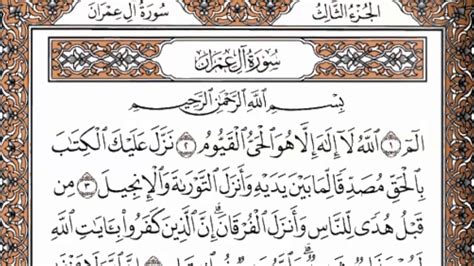 الجُزْءُ الثَّالِثُ
سُورَةُ آلِ عِمْرَانَ
سُورَةُ آلِ عِمْرَانَ
بِسْمِ اللَّهِ الرَّحْمَٰنِ الرَّحِيمِ
الٓمٓ ١ ٱللَّهُ لَآ إِلَٰهَ إِلَّا هُوَ ٱلْحَىُّ ٱلْقَيُّومُ ٢ نَزَّلَ عَلَيْكَ ٱلْكِتَٰبَ
بِٱلْحَقِّ مُصَدِّقًا لِّمَا بَيْنَ يَدَيْهِ وَأَنزَلَ ٱلتَّوْرَىٰةَ وَٱلْإِنجِيلَ ٣ مِن
قَبْلُ هُدًى لِّلنَّاسِ وَأَنزَلَ ٱلْفُرْقَانَۗ إِنَّ ٱلَّذِينَ كَفَرُوا۟ بِـَٔايَٰتِ ٱللَّهِ